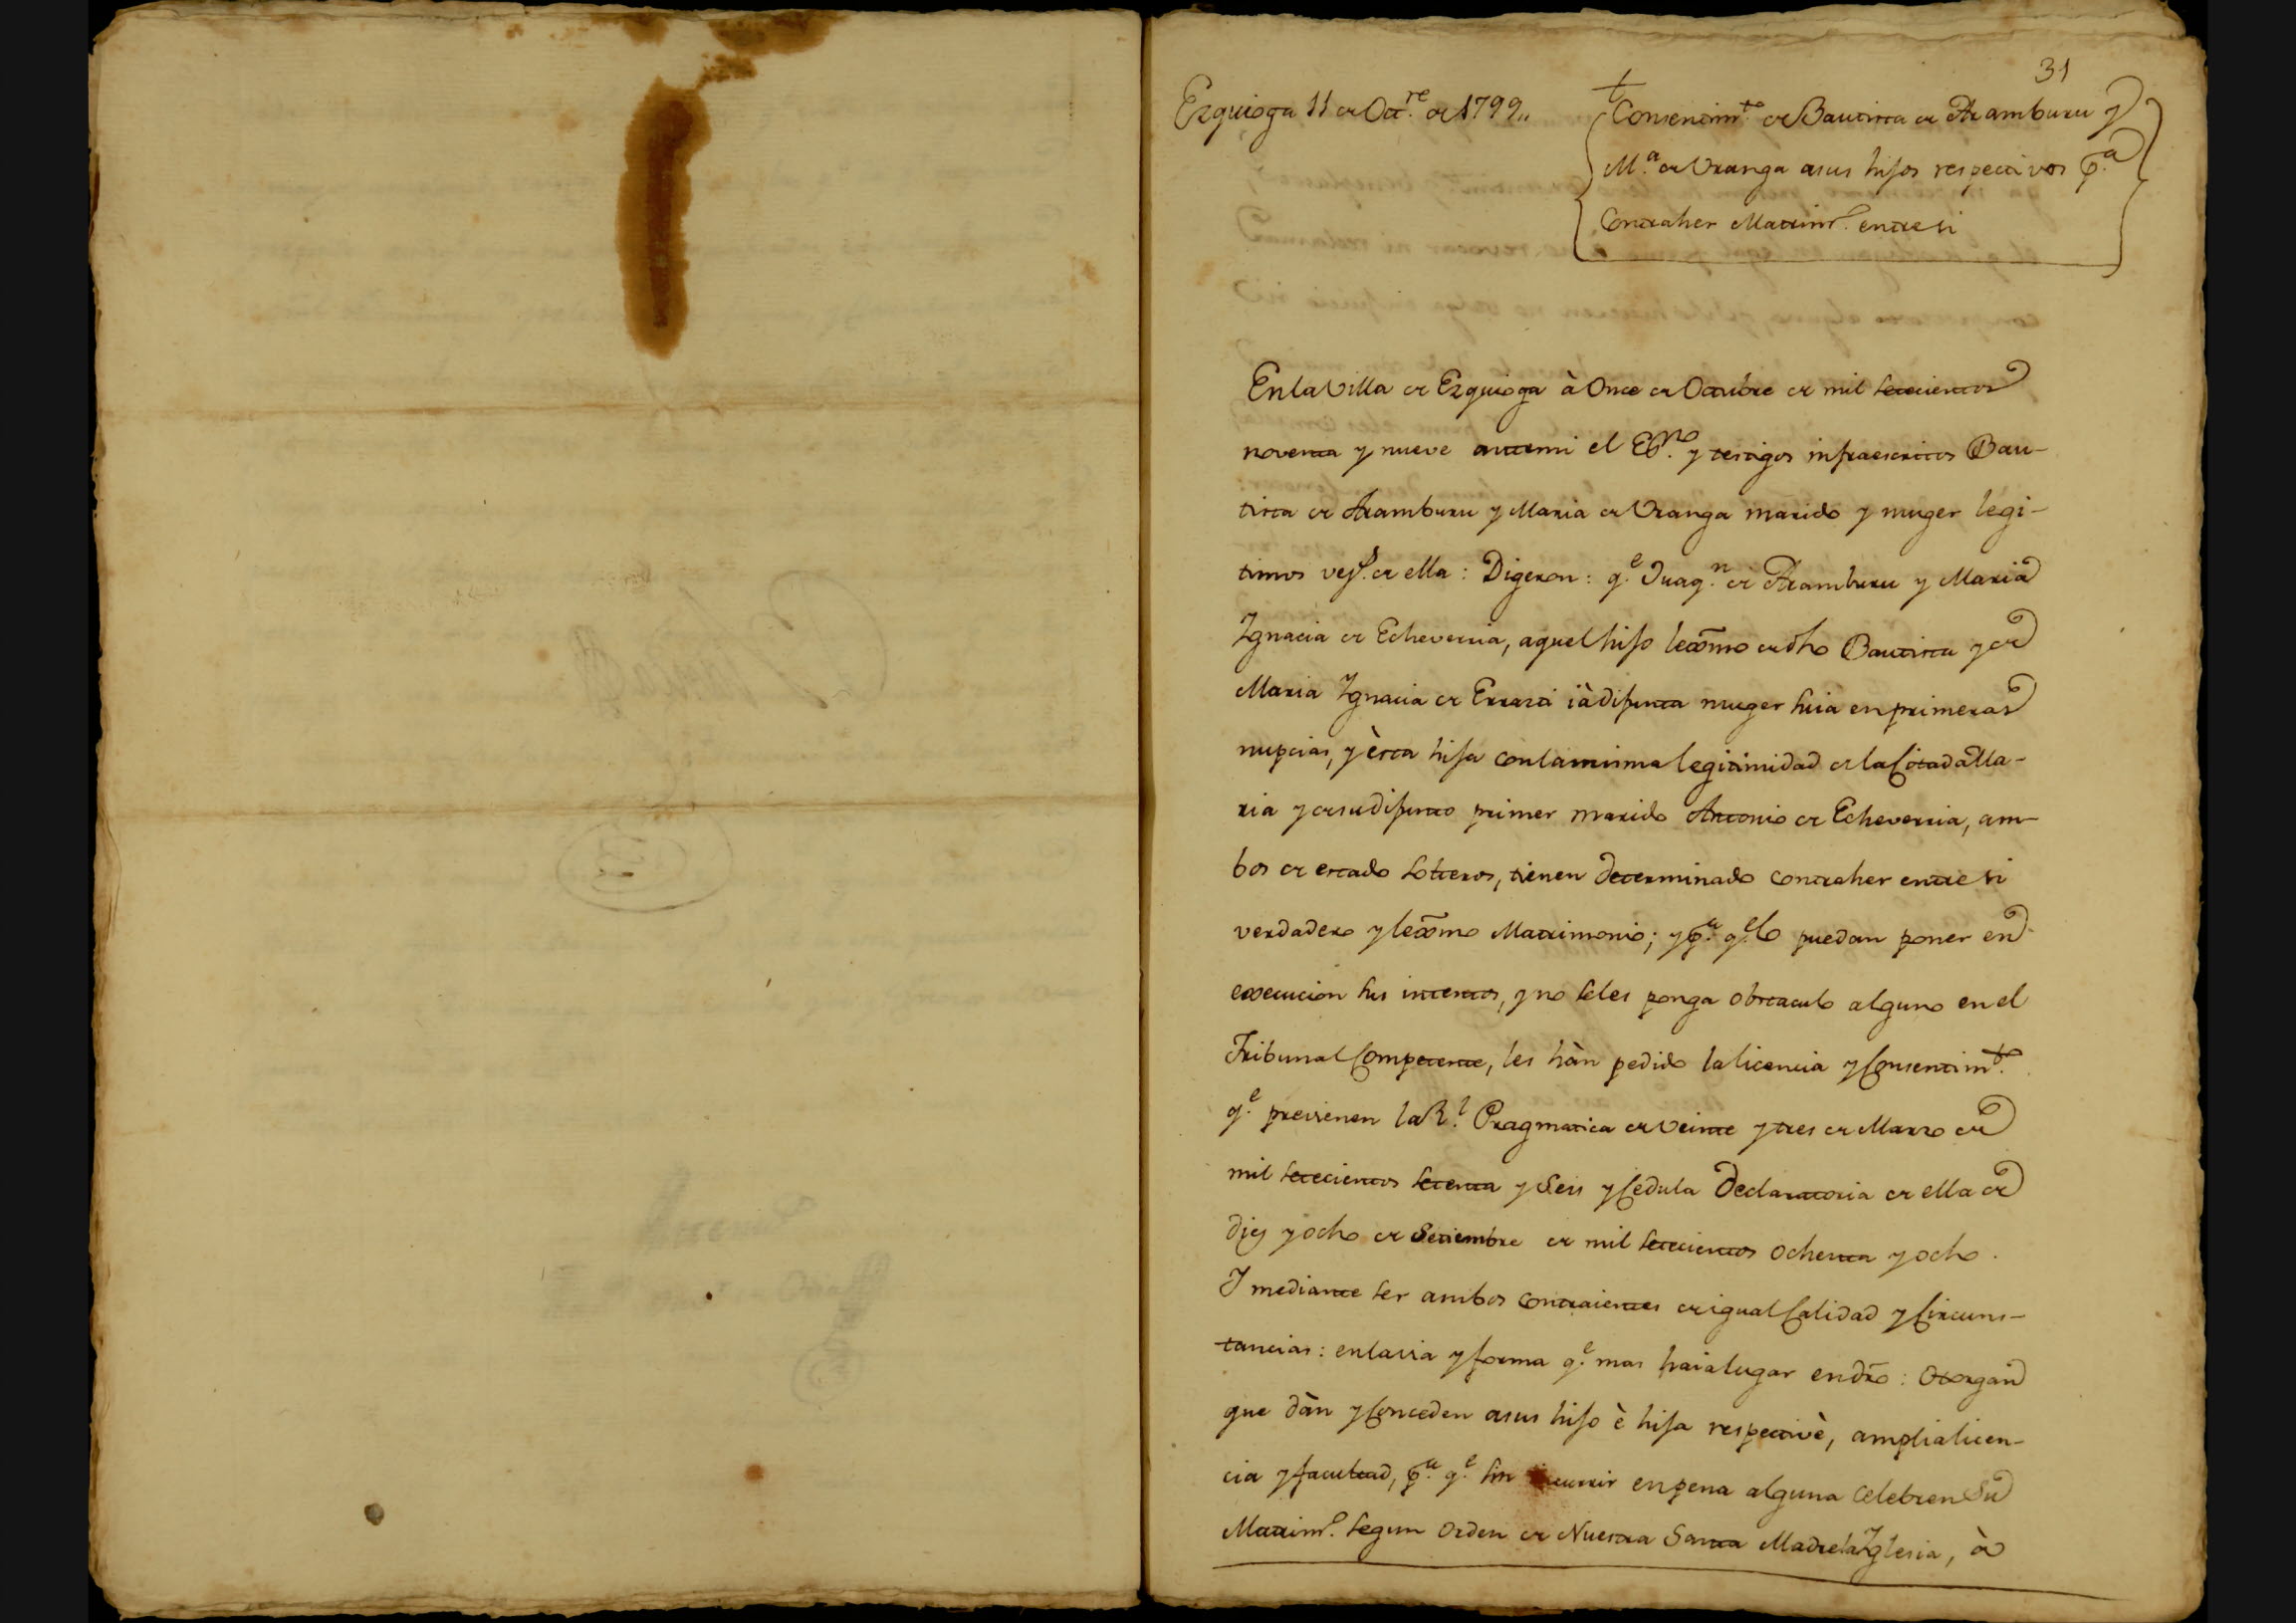 31
Ezquioga 11 de Oct.re de 1799,,
Consentim.to de Bautista de Aramburu y
M.a de Uranga asus hijos respectivos p.a
Contraher Matrim.o entresi
EnlaVilla de Ezquioga à Once de Octubre de mil setecientos
noventa y nueve antemi el Es.no y testigos infraescritos Bau-
tista de Aramburu y Maria de Uranga marido y muger legi-
timos vez.s de ella: Digeron: q.e Juaq.n de Aramburu y Maria
Ignacia de Echeverria, aquel hijo lexmo de dho Bautista y de
Maria Ignacia de Errasti ià difunta muger suia enprimeras
nupcias, y èsta hija conlamisma legitimidad de laCitada Ma-
ria y desudifunto primer marido Antonio de Echeverria, am-
bos de estado solteros, tienen determinado contraher entresi
verdadero y lexmo Matrimonio; y p.a q.e lo puedan poner en
execucion sus intentos, y no seles ponga obstaculo alguno en el
Tribunal Competente, les hàn pedido lalicencia y Consentim.to
q.e previenen la R.l Pragmatica de veinte y tres de Marzo de
mil setecientos setenta y Seis y Cedula Declaratoria de ella de
diez y ocho de Setiembre de mil setecientos ochenta y ocho.
Y mediante ser ambos contraientes de igual Calidad y Circuns-
tancias: enlavia y forma q.e mas haialugar endro: Otorgan
que dàn y Conceden asus hijo è hija respectivè, amplialicen-
cia y facultad, p.a q.e sin incurrir enpena alguna celebren Su
Matrim.o segun Orden de Nuestra Santa MadrelaIglesia, à